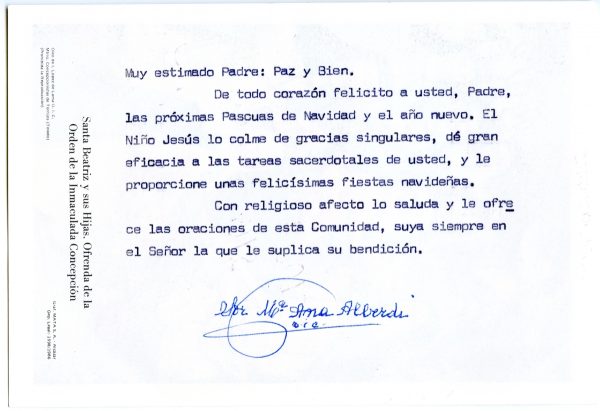 Muy estimado Padre: Paz y Bien.
De todo corazón felicito a usted, Padre,
las próximas Pascuas de Navidad y el año nuevo. El
Niño Jesús lo colme de gracias singulares, dé gran
eficacia a las tareas sacerdotales de usted, y le
proporcione unas felicísimas fiestas navideñas.
Con religioso afecto lo saluda y le ofre
ce las oraciones de esta Comunidad, suya siempre en
el Señor la que le suplica su bendición.
Sor Mª Ana Alberdi
o.i.c.
Santa Beatriz y sus Hijas. Ofrenda de la
Orden de la Inmaculada Concepción